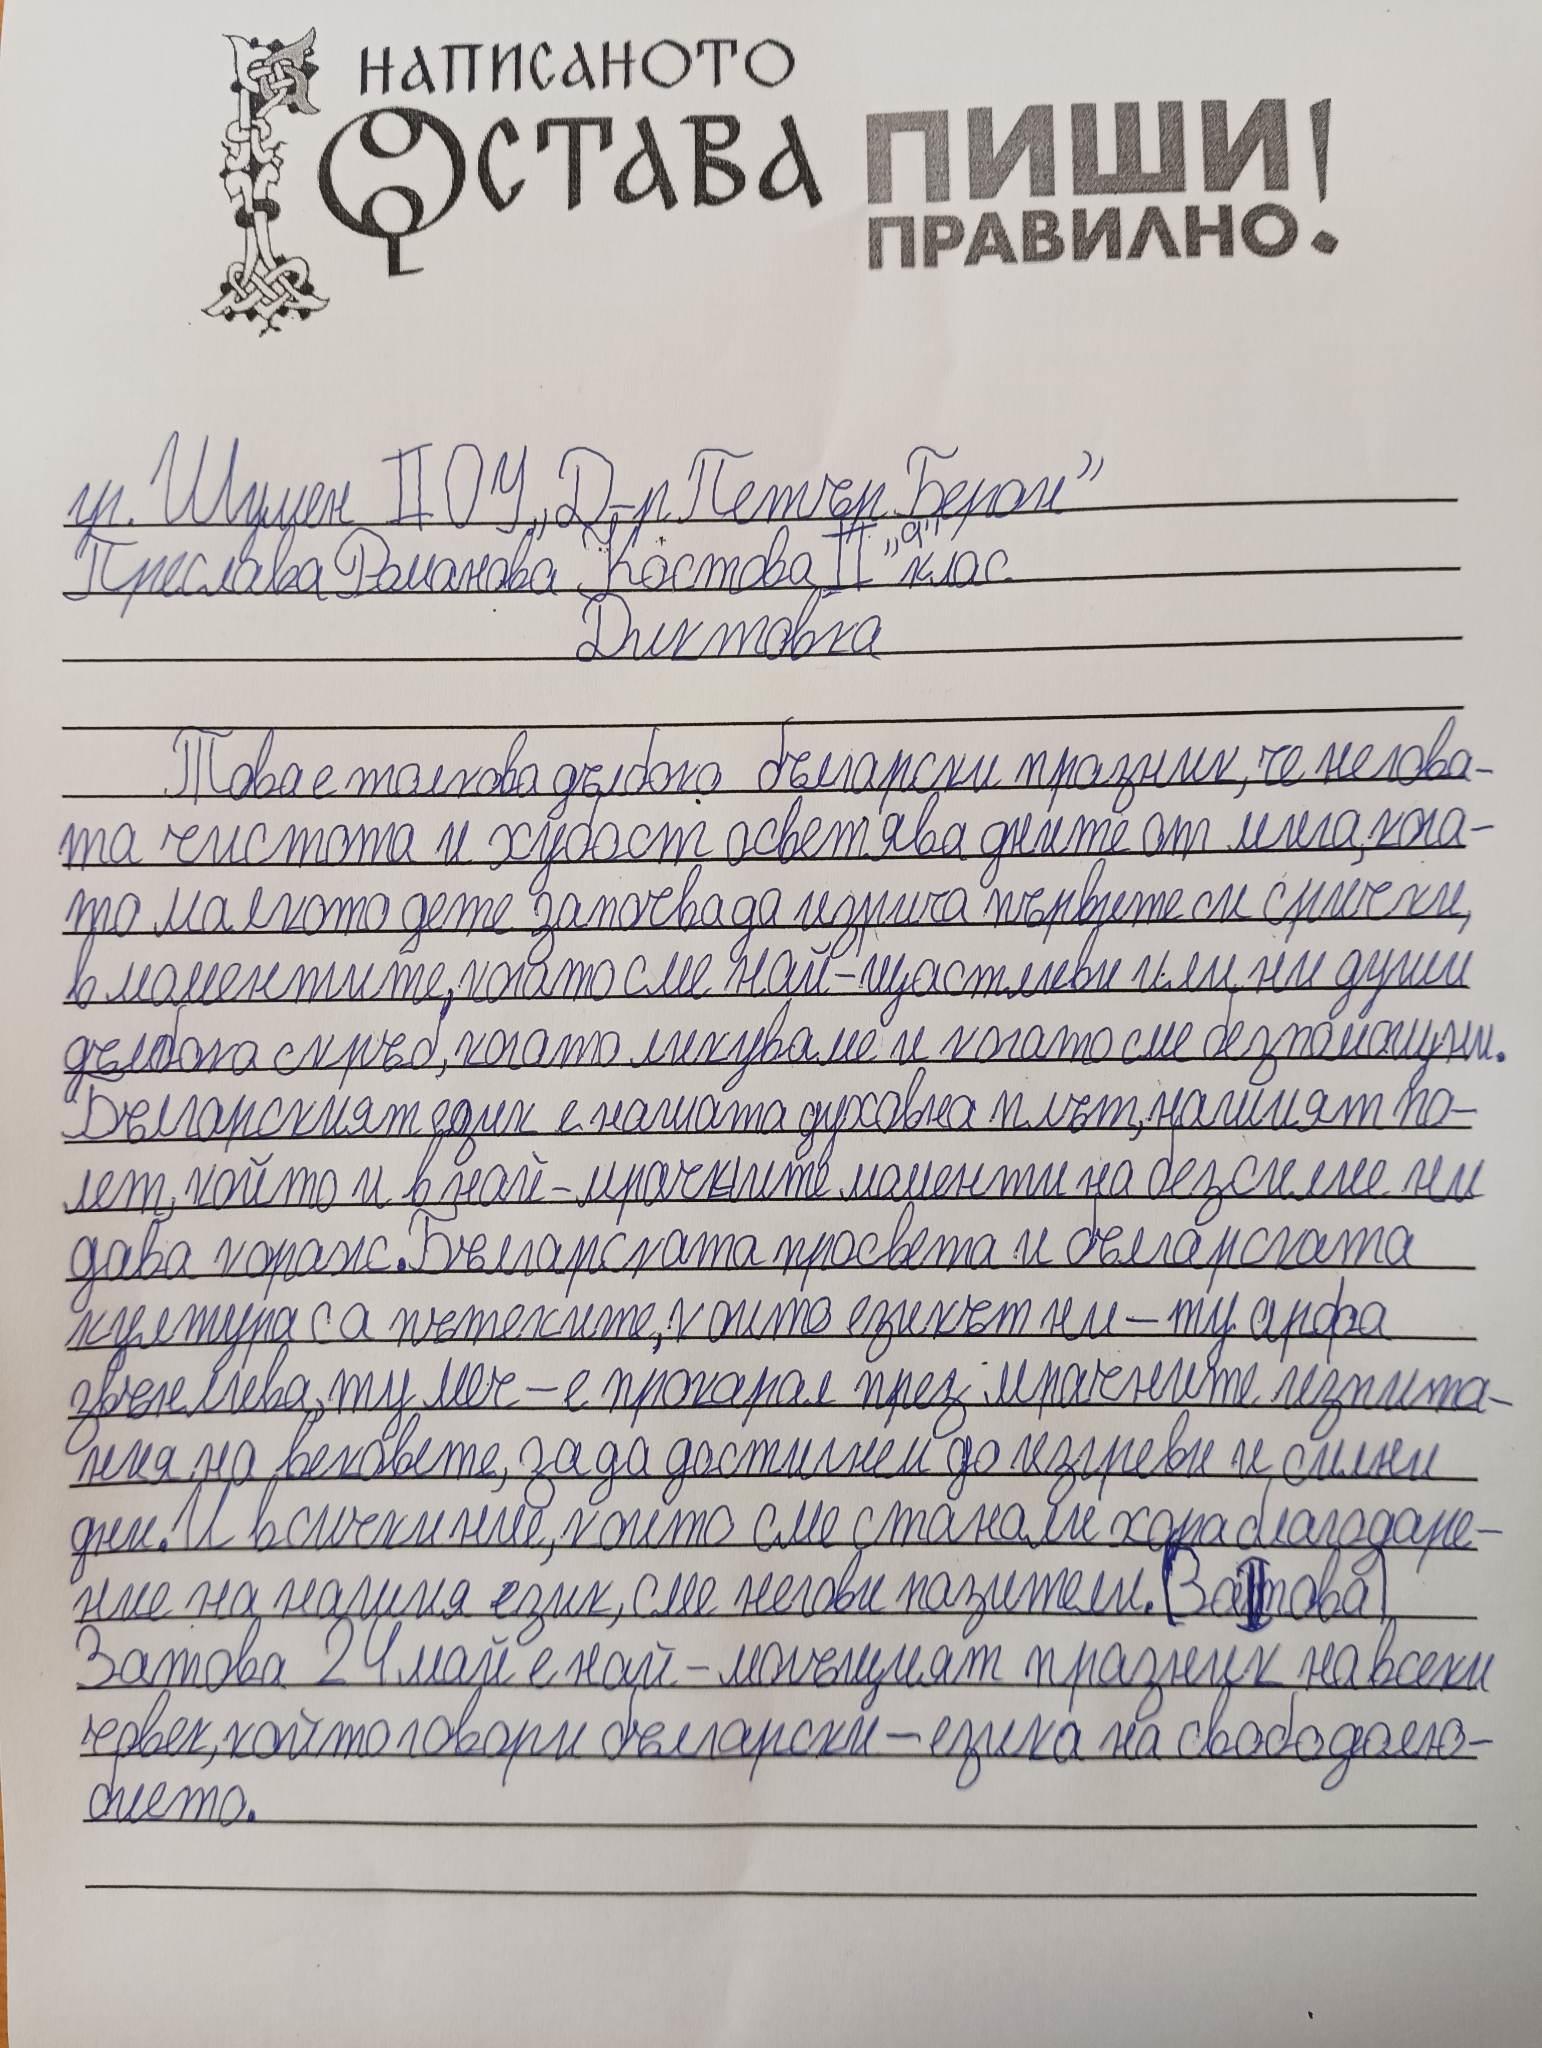 НАПИСАНОТО
ОСТАВА ПИШИ!
ПРАВИЛНО
гр. Шумен II ОУ „Д-р Петър Берон”
Преслава Романова Костова II „а” клас
Диктовка
Това е толкова дълбоко български празник, че негова-
та чистота и хубост осветява дните от мига, кога-
то малкото дете започва да изрича първите си срички,
в моментите, когато сме най-щастливи или ни души
дълбока скръб, когато ликуваме и когато сме безпомощни.
Българският език е нашата духовна плът, нашият по-
лет, който и в най-мрачните моменти на безсилие ни
дава кораж. Българската просвета и българската
култура са пътеките, които езикът ни – ту арфа
звънлива, ту меч – е прокарал през мрачните изпита-
ния на вековете, за да достигнем до изгреви и силни
дни. И всички ние, които сме станали хора благодаре-
ние на нашия език, сме негови пазители. (Затова)
Затова 24 май е най-могъщият празник на всеки
човек, който говори български – езика на свободолю-
бието.